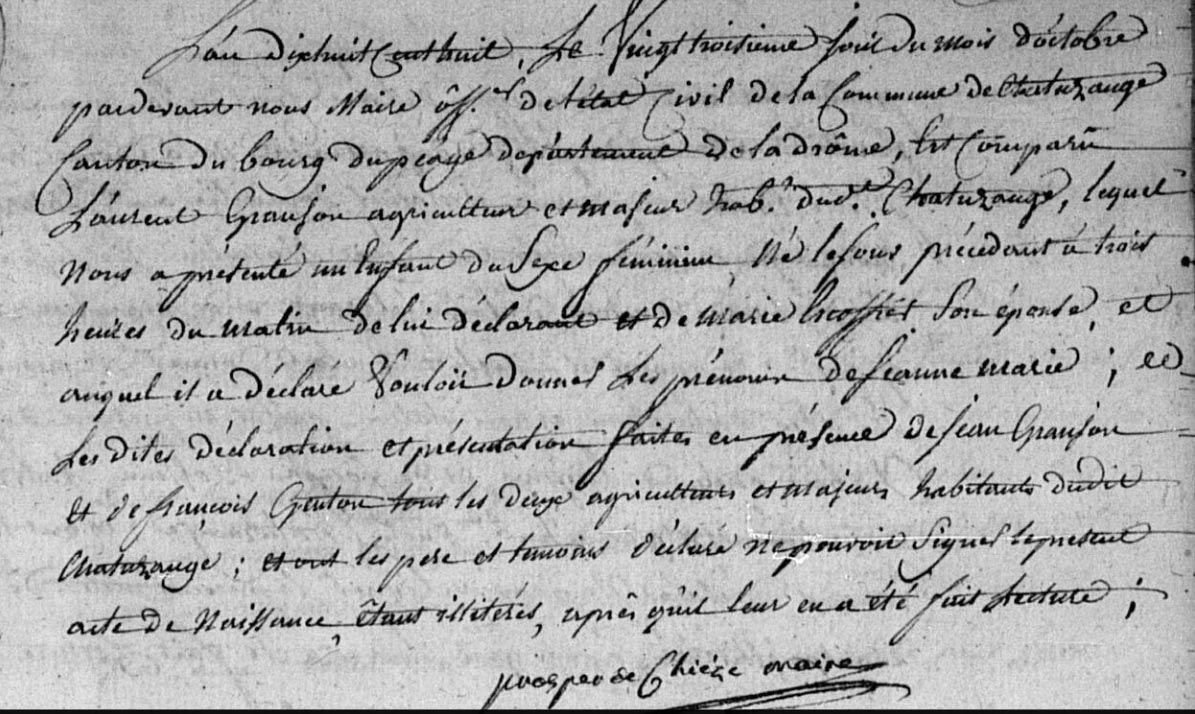 L'an dixhuit Cent huit, Le Vingt troisieme jour du mois d'octobre
pardevant nous Maire off.el de l'état Civil de la Commune de Chatuzange
Canton du bourg du péage département de la drôme, Est Comparu
Laurent Granjon agriculteur et majeur hab.t dud.t Chatuzange, lequel
Nous a présenté un Enfant du Sexe féminin Né le jour précédant à trois
heures du matin de lui déclarant et de marie Escoffier Son épouse, et
auquel il a déclaré Vouloir donner Les prénoms de jeanne marie ; et
Les dites déclaration et présentation faites en présence de jean Granjon
et de françois Genton tous les deux agriculteurs et majeurs habitants dudit
Chatuzange ; et ont les pere et temoins déclaré ne pouvoir Signer le present
acte de Naissance étant illitérés, après qu'il leur en a été fait Lecture ;
prosper de Chièze maire